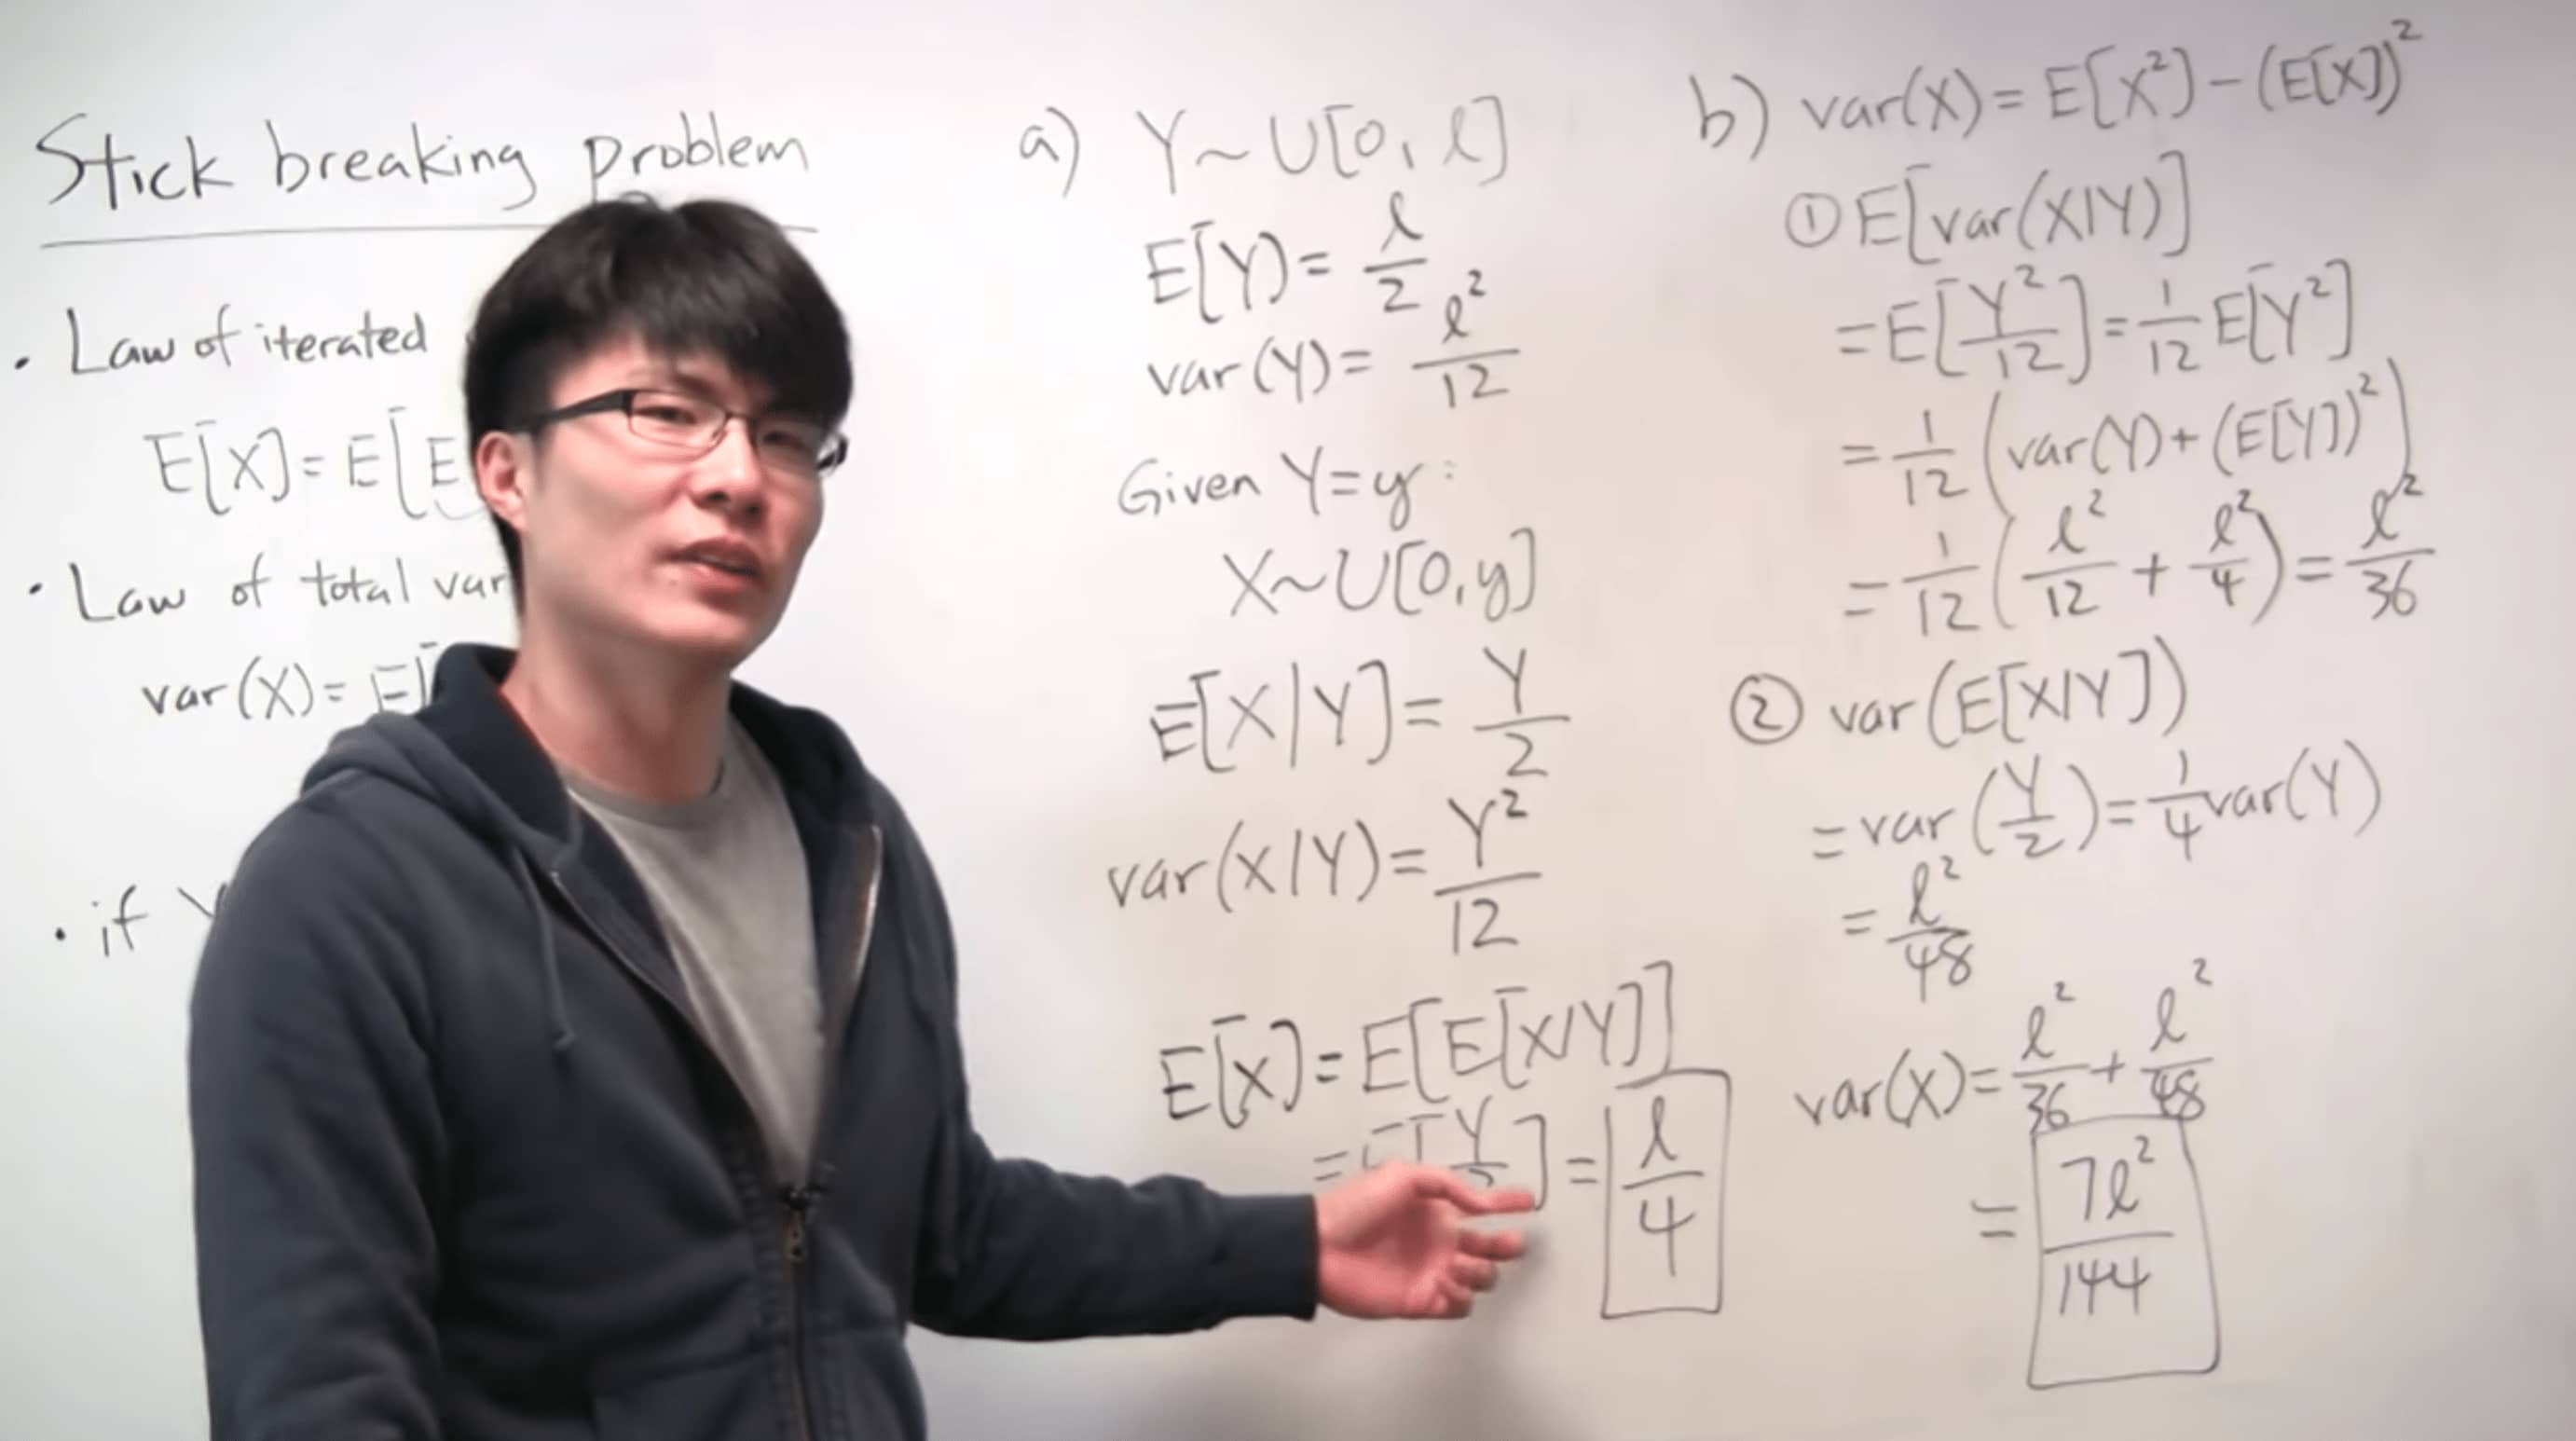 Stick breaking problem
• Law of iterated
E[X] = E[E
• Law of total var
var(X) = E[
• if Y
a) Y ~ U[0, ℓ]
E[Y] = ℓ/2
var(Y) = ℓ²/12
Given Y=y:
X ~ U[0,y]
E[X|Y] = Y/2
var(X|Y) = Y²/12
E[X] = E[E[X|Y]]
= E[Y/2] = ℓ/4
b) var(X) = E[X²] - (E[X])²
① E[var(X|Y)]
= E[Y²/12] = 1/12 E[Y²]
= 1/12 (var(Y) + (E[Y])²)
= 1/12 (ℓ²/12 + ℓ²/4) = ℓ²/36
② var(E[X|Y])
= var(Y/2) = 1/4 var(Y)
= ℓ²/48
var(X) = ℓ²/36 + ℓ²/48
= 7ℓ²/144